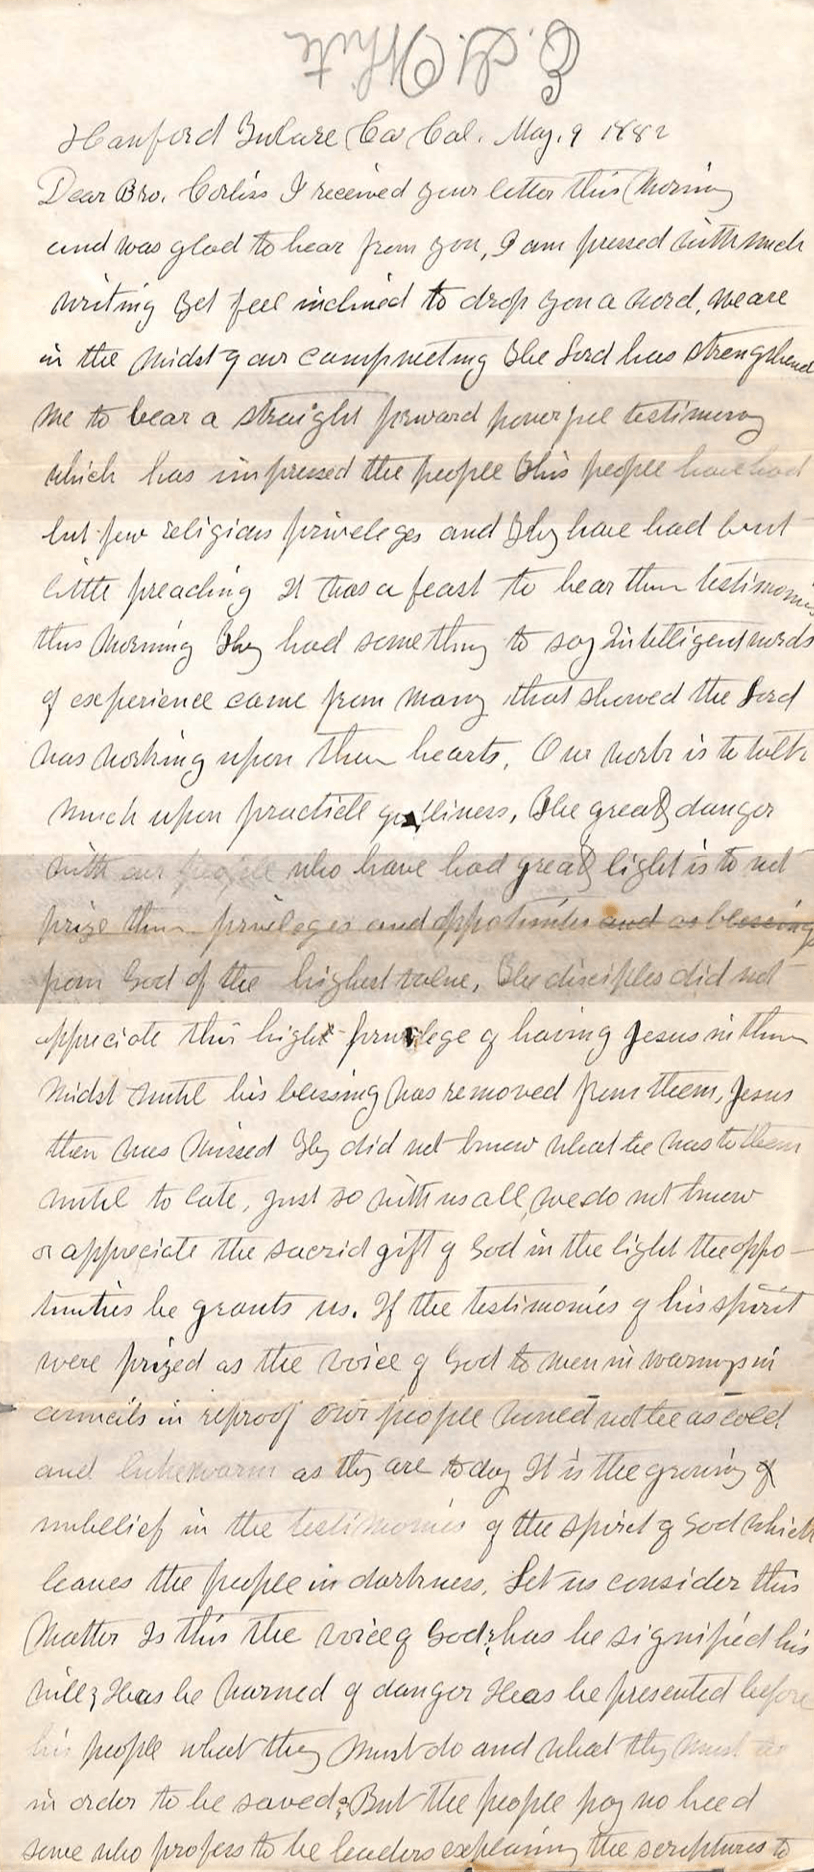 E. G. White
Hanford Tulare Co Cal. May. 9 1882
Dear Bro. Corliss I received your letter this Morning
and was glad to hear from you, I am pressed with much
writing yet feel inclined to drop you a word, we are
in the midst of our campmeeting The Lord has strengthend
me to bear a straight forward powerful testimony
which has impressed the people This people have had
but few religious priveleges and They have had but
little preaching It was a feast to hear their testimonies
this Morning They had something to say Intelligent words
of experience came from many that showed the Lord
was working upon their hearts, Our work is to talk
much upon practicle godliness, The great danger
with our people who have had great light is to not
prize their privileges and oppotunities and as blessings
from God of the highest value, The disciples did not
appriciate this high privilege of having Jesus in their
midst until his blessing was removed from them, Jesus
then was missed They did not know what he was to them
until to late, just so with us all, we do not know
or appreciate the sacrid gift of God in the light the oppo-
tunties he grants us. If the testimonies of his spirit
were prized as the voice of God to men in warnings in
councils in reproof our people would not be as cold
and lukewarm as they are today It is the growing of
unbelief in the testimonies of the spirit of God which
leaves the people in darkness, Let us consider this
Matter Is this the voice of God? has he signified his
will? Has he warned of danger Has he presented before
his people what they must do and what they must be
in order to be saved? But the people pay no heed
some who profess to be leaders explaining the scriptures to